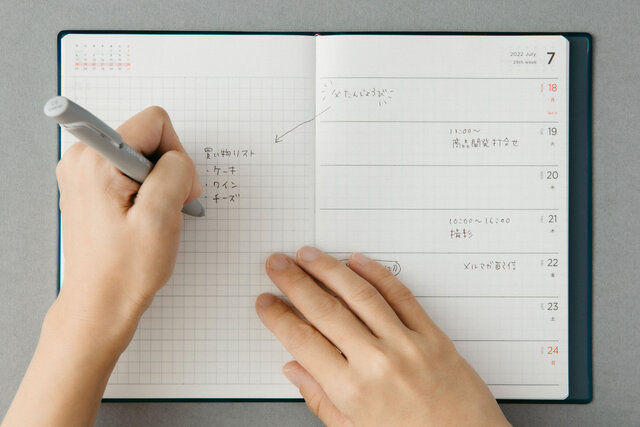 2022 July
29th week
7
18
月
父たんじょうび
19
火
11:00〜
商品開発打合せ
買い物リスト
・ケーキ
・ワイン
・チーズ
20
水
21
木
10:00〜16:00
撮影
22
金
メルマガ配信
23
土
24
日